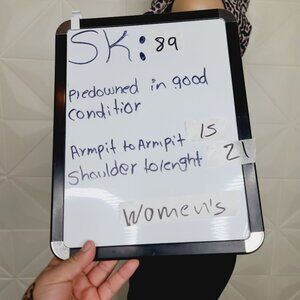 SK: 89
Predowned in good
condition
Armpit to Armpit 15
shoulder to lenght 21
Women's